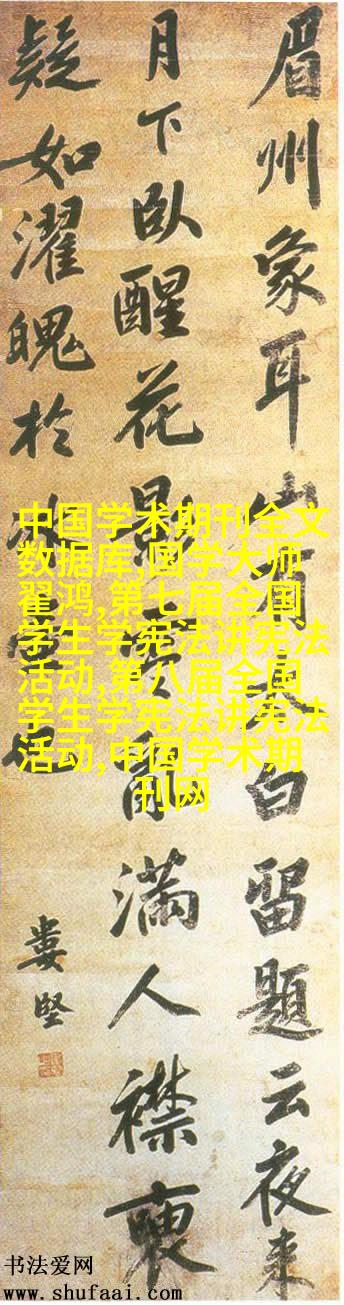 眉州象耳山有太白留題云夜来
月下臥醒花影零亂滿人襟褏
疑如濯魄於冰壺也
婁堅
中国学术期刊全文
数据库,国学大师
翟鸿,第七届全国
学生学宪法讲宪法
活动,第八届全国
学生学宪法讲宪法
活动,中国学术期
刊网
书法爱网
www.shufaai.com